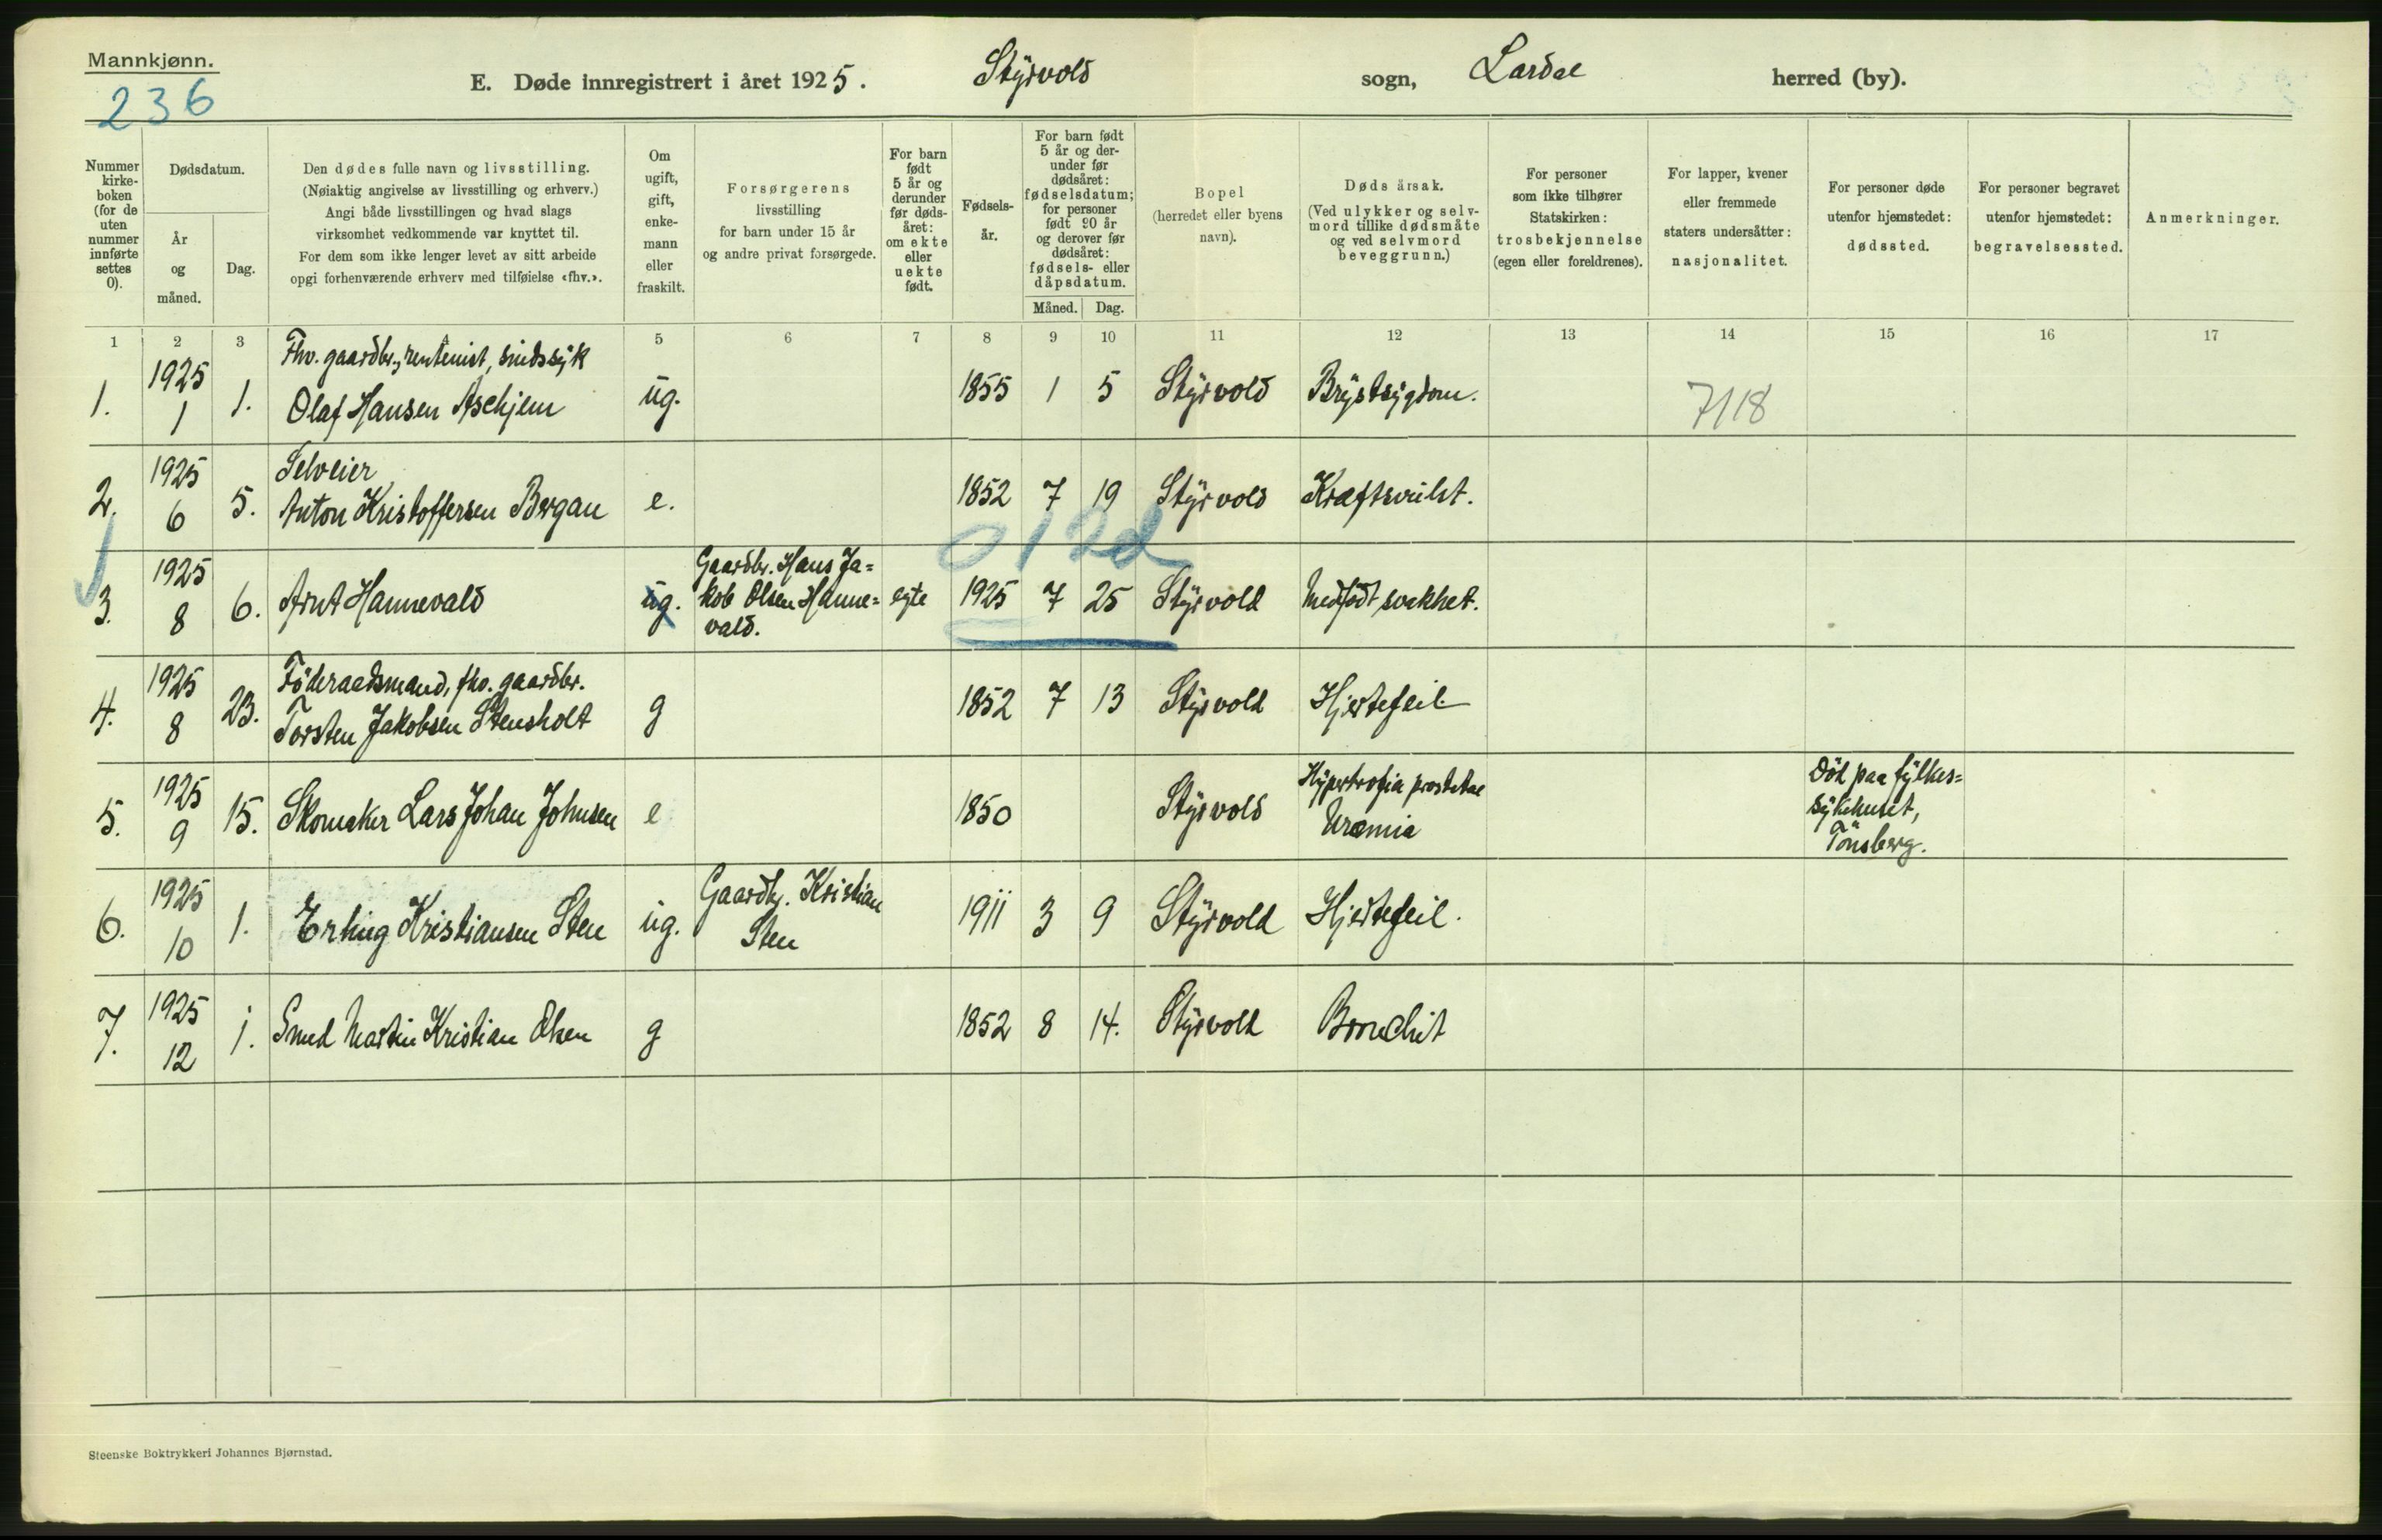 Mannkjønn.
236
E. Døde innregistrert i året 1925. Styrvold sogn, Lardal herred (by).
Nummer kirke-boken (for de uten nummer innførte settes 0).
Dødsdatum.
År og måned.
Dag.
Den dødes fulle navn og livsstilling.
(Nøiaktig angivelse av livsstilling og erhverv.)
Angi både livsstillingen og hvad slags
virksomhet vedkommende var knyttet til.
For dem som ikke lenger levet av sitt arbeide
opgi forhenværende erhverv med tilføielse «fhv.».
Om ugift, gift, enke-mann eller fraskilt.
Forsørgerens
livsstilling
for barn under 15 år
og andre privat forsørgede.
For barn født 5 år og derunder før døds-året: om ekte eller uekte født.
Fødsels-år.
For barn født 5 år og der-under før dødsåret: fødselsdatum; for personer født 90 år og derover før dødsåret: fødsels- eller dåpsdatum.
Måned. Dag.
Bopel
(herredet eller byens
navn).
Døds årsak.
(Ved ulykker og selv-
mord tillike dødsmåte
og ved selvmord
beveggrunn.)
For personer
som ikke tilhører
Statskirken:
trosbekjennelse
(egen eller foreldrenes).
For lapper, kvener
eller fremmede
staters undersåtter:
nasjonalitet.
For personer døde
utenfor hjemstedet:
dødssted.
For personer begravet
utenfor hjemstedet:
begravelsessted.
Anmerkninger.
1 2 3 5 6 7 8 9 10 11 12 13 14 15 16 17
Fhv. gaardbr., rentenist, sindssyk
1. 1925 1 1. Olaf Hansen Aschjem ug. 1855 1 5 Styrvold Brystsygdom. 7/18
Selveier
2. 1925 6 5. Anton Kristoffersen Bergan e. 1852 7 19 Styrvold Kræftsvulst.
0 12d
3. 1925 8 6. Arnt Hannevald ug. Gaardbr. Hans Ja=
kob Olsen Hanne=
vald. egte 1925 7 25 Styrvold Medfødt svakhet.
Föderaadsmand, fhv. gaardbr.
4. 1925 8 23. Torsten Jakobsen Stensholt g 1852 7 13 Styrvold Hjertefeil
5. 1925 9 15. Skomaker Lars Johan Johnsen e 1850 Styrvold Hypertrofia prostatae
Uræmia
Död paa fylkes=
sykehuset,
Tönsberg.
6. 1925 10 1. Erling Kristiansen Sten ug. Gaardbr. Kristian
Sten 1911 3 9 Styrvold Hjertefeil.
7. 1925 12 1. Smed Martin Kristian Olsen g 1852 8 14. Styrvold Bronchit
Steenske Boktrykkeri Johannes Bjørnstad.